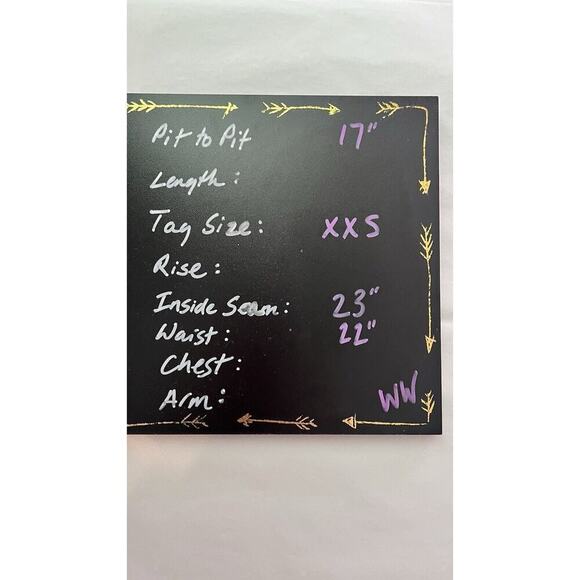 Pit to Pit 17"
Length:
Tag Size: XXS
Rise:
Inside Seam: 23"
Waist: 22"
Chest:
Arm:
WW